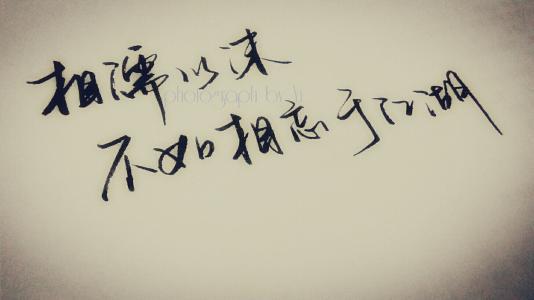 相濡以沫
photograph by
不如相忘于江湖